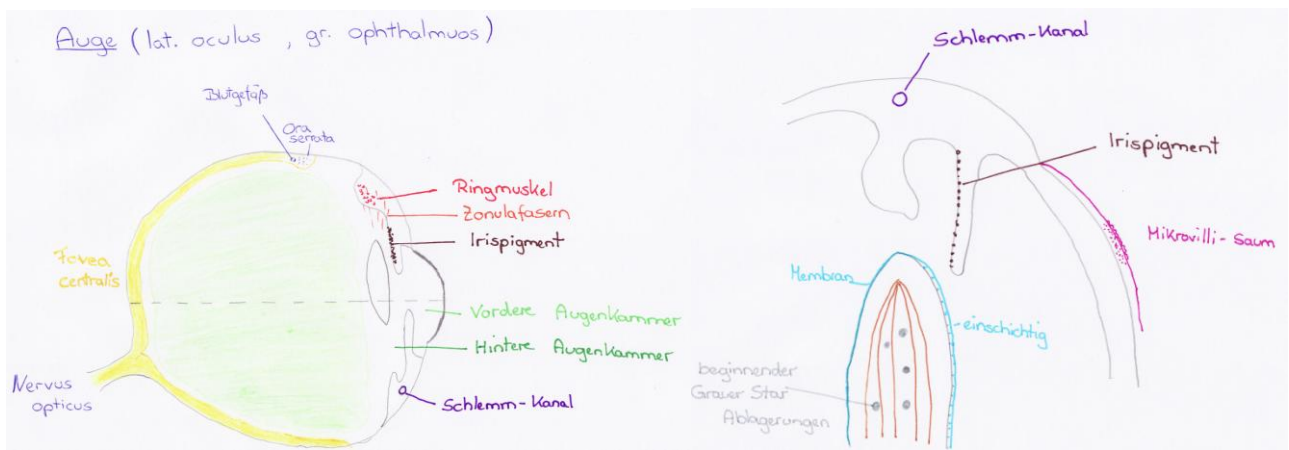 Auge (lat. oculus , gr. ophthalmuos)
Blutgefäß
Ora
serrata
Ringmuskel
Zonulafasern
Irispigment
Fovea
centralis
Vordere Augenkammer
Hintere Augenkammer
Nervus
opticus
Schlemm-Kanal
Schlemm-Kanal
Irispigment
Mikrovilli-Saum
Membran
einschichtig
beginnender
Grauer Star
Ablagerungen